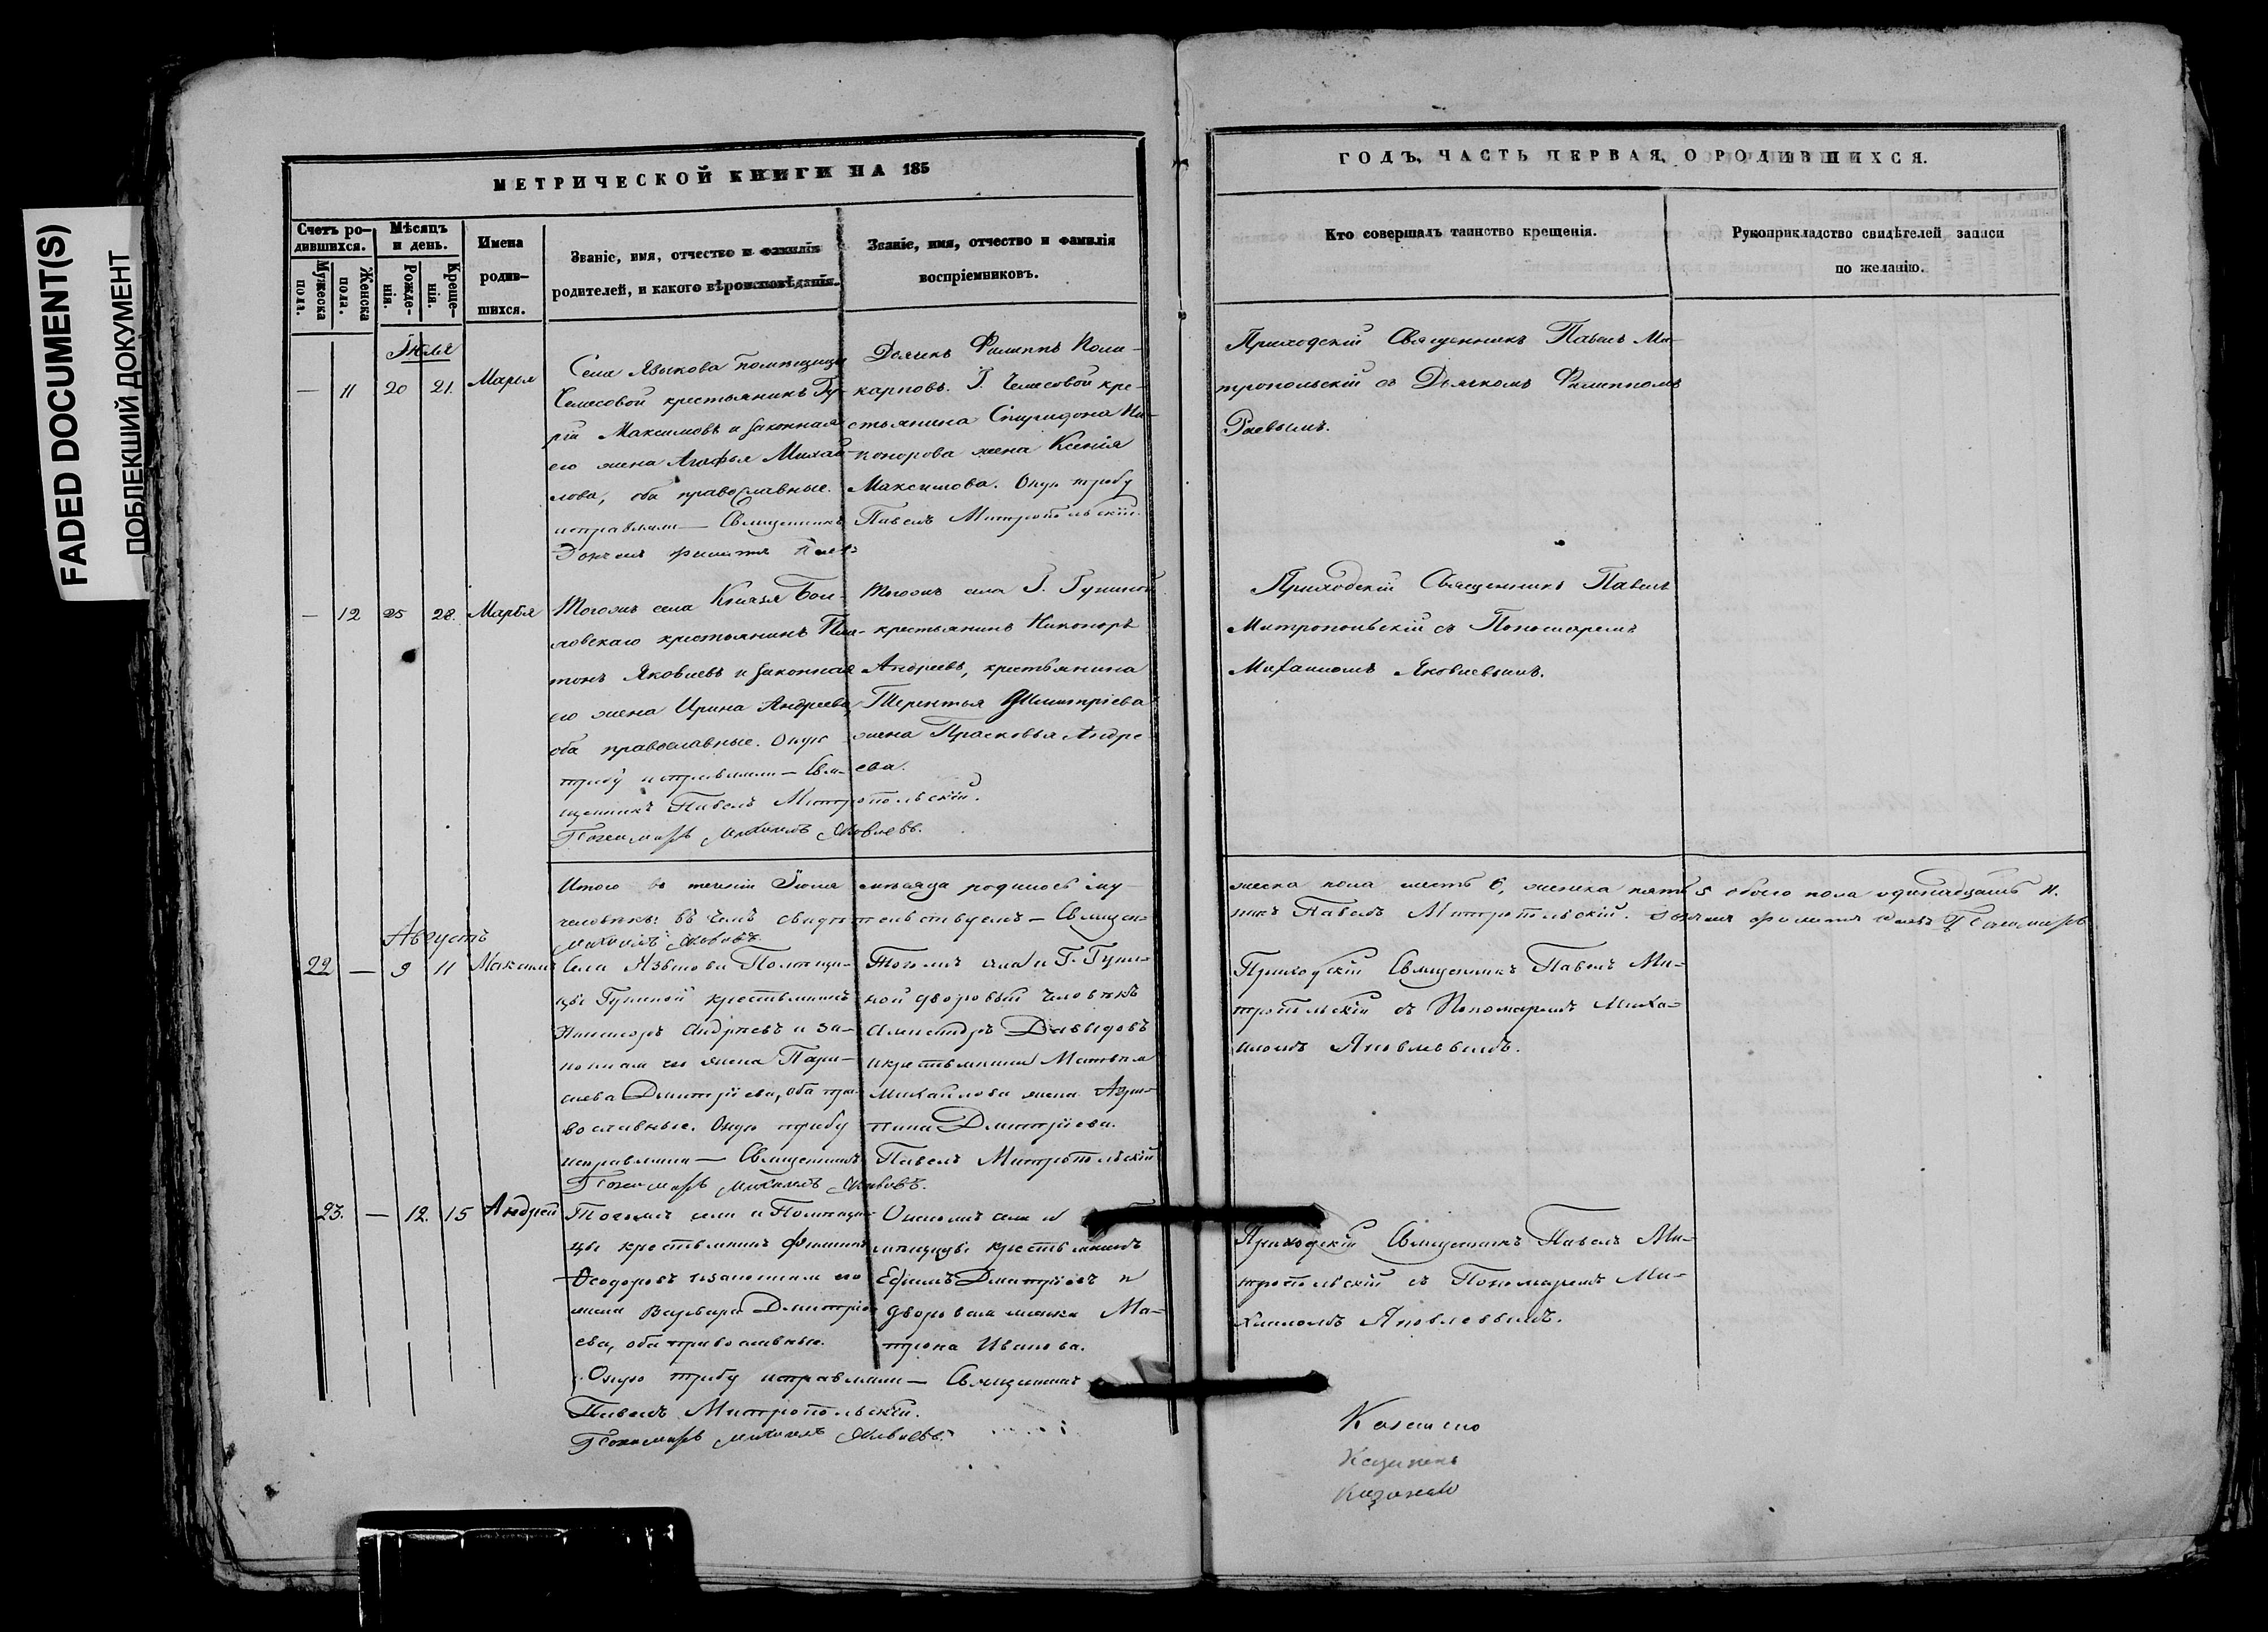 FADED DOCUMENT(S)
ПОБЛЕКШИЙ ДОКУМЕНТ
МЕТРИЧЕСКОЙ КНИГИ НА 185
Счетъ ро-
дившихся.
Мужеска
пола.
Женска
пола.
Мѣсяцъ
и день.
Рожде-
нія.
Креще-
нія.
Имена
родив-
шихся.
Званіе, имя, отчество и фамилія
родителей, и какого вѣроисповѣданія.
Званіе, имя, отчество и фамилія
воспріемниковъ.
Іюля
— 11 20 21. Марья
Села Языкова помѣщицы
крестьянинъ
Максимовъ и законная
его жена Агафья Михай-
лова, оба православные.
исправляли — Священникъ
Дьячекъ Филиппъ Поли-
карповъ. Г. кре-
стьянина Спиридона Ни-
конорова жена Ксенія
Максимова. Оную требу
Павелъ Митропольскій.
— 12 25 28. Марья
Тогожъ села Князя
крестьянинъ Пла-
тонъ Яковлевъ и законная
его жена Ирина Андреева,
оба православные. Оную
требу исправляли — Свя-
щенникъ Павелъ Митропольскій.
Пономарь Михаилъ Яковлевъ.
Тогожъ села Г.
крестьянинъ Никоноръ
Андреевъ, крестьянина
Терентья Дмитріева
жена Прасковья Андре-
ева.
Итого въ теченіи Іюля мѣсяца родилось му-
человѣкъ: въ чемъ свидѣтельствуемъ — Священ-
Михаилъ Яковлевъ
Августъ
22 — 9 11 Максимъ
Села Языкова Помѣщи-
цы крестьянинъ
Никаноръ Андреевъ и за-
конная его жена Пара-
скева Дмитріева, оба пра-
вославные. Оную требу
исправляли — Священникъ
Пономарь Михаилъ Яковлевъ.
Тогожъ села и Г.
ной дворовый человѣкъ
Александръ Давыдовъ
и крестьянина Матвѣя
Михайлова жена Агри-
пина Дмитріева.
Павелъ Митропольскій
23. — 12. 15 Андрей
Тогожъ села и Помѣщи-
цы крестьянинъ Филиппъ
Ѳеодоровъ и законная его
жена Варвара Дмитрі-
ева, оба православные.
Оную требу исправляли — Священникъ
Павелъ Митропольскій.
Пономарь Михаилъ Яковлевъ.
села и
мѣщицы крестьянинъ
Ефимъ Дмитріевъ и
дворовая Ма-
трона Иванова.
ГОДЪ, ЧАСТЬ ПЕРВАЯ, О РОДИВШИХСЯ.
Кто совершалъ таинство крещенія.
Рукоприкладство свидѣтелей записи
по желанію.
Приходскій Священникъ Павелъ Ми-
тропольскій съ Дьячкомъ Филиппомъ
Приходскій Священникъ Павелъ
Митропольскій съ Пономаремъ
Михаиломъ Яковлевымъ.
жеска пола шесть 6, женска пять 5 обоего пола одинадцать 11.
никъ Павелъ Митропольскій. Дьячекъ Филиппъ Пономарь
Приходскій Священникъ Павелъ Ми-
тропольскій съ Пономаремъ Миха-
иломъ Яковлевымъ.
Приходскій Священникъ Павелъ Ми-
тропольскій съ Пономаремъ Ми-
хаиломъ Яковлевымъ.